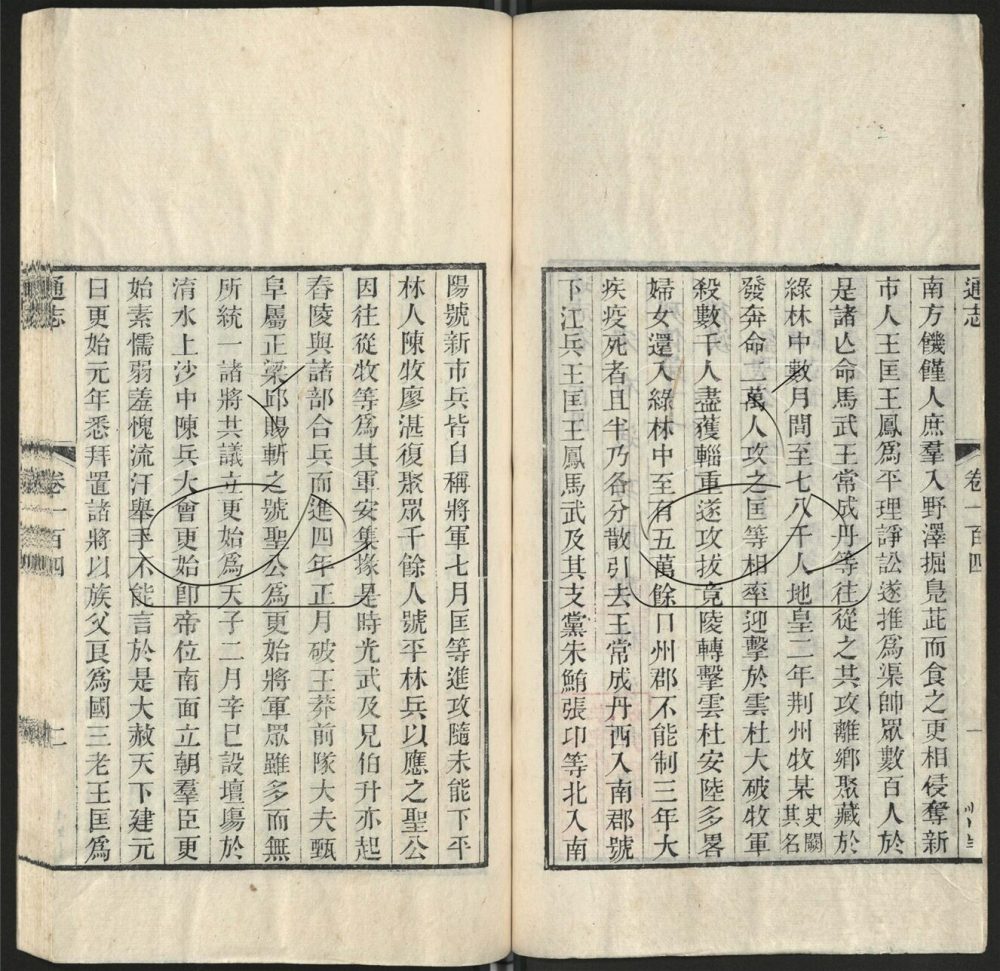 通志
卷一百四
一
南方饑僅人庶羣入野澤掘鳧茈而食之更相侵奪新
市人王匡王鳳為平理諍訟遂推為渠帥眾數百人於
是諸亾命馬武王常成丹等往從之其攻離鄉聚藏於
綠林中數月間至七八千人地皇二年荆州牧某史闕其名
發奔命二萬人攻之匡等相率迎擊於雲杜大破牧軍
殺數千人盡獲輜重遂攻拔竟陵轉擊雲杜安陸多畧
婦女還入綠林中至有五萬餘口州郡不能制三年大
疾疫死者且半乃各分散引去王常成丹西入南郡號
下江兵王匡王鳳馬武及其支黨朱鮪張卬等北入南
陽號新市兵皆自稱將軍七月匡等進攻隨未能下平
林人陳牧廖湛復聚眾千餘人號平林兵以應之聖公
因往從牧等爲其軍安集掾是時光武及兄伯升亦起
舂陵與諸部合兵而進四年正月破王莽前隊大夫甄
阜屬正梁邱賜斬之號聖公爲更始將軍眾雖多而無
所統一諸將共議立更始爲天子二月辛巳設壇場於
淯水上沙中陳兵大會更始卽帝位南面立朝羣臣更
始素懦弱羞愧流汗舉手不能言於是大赦天下建元
曰更始元年悉拜置諸將以族父良爲國三老王匡爲
通志
卷一百四
二